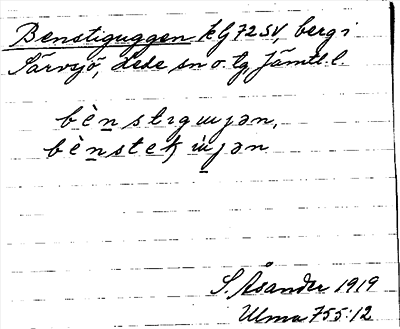 Benstiguggen kG72SV, berg i
Särvsjö, Hede sn o. tg, Jämtl. l.
bènstıgɯȷən,
bènstekɯȷən
S. Åsander 1919
Ulma 755:12